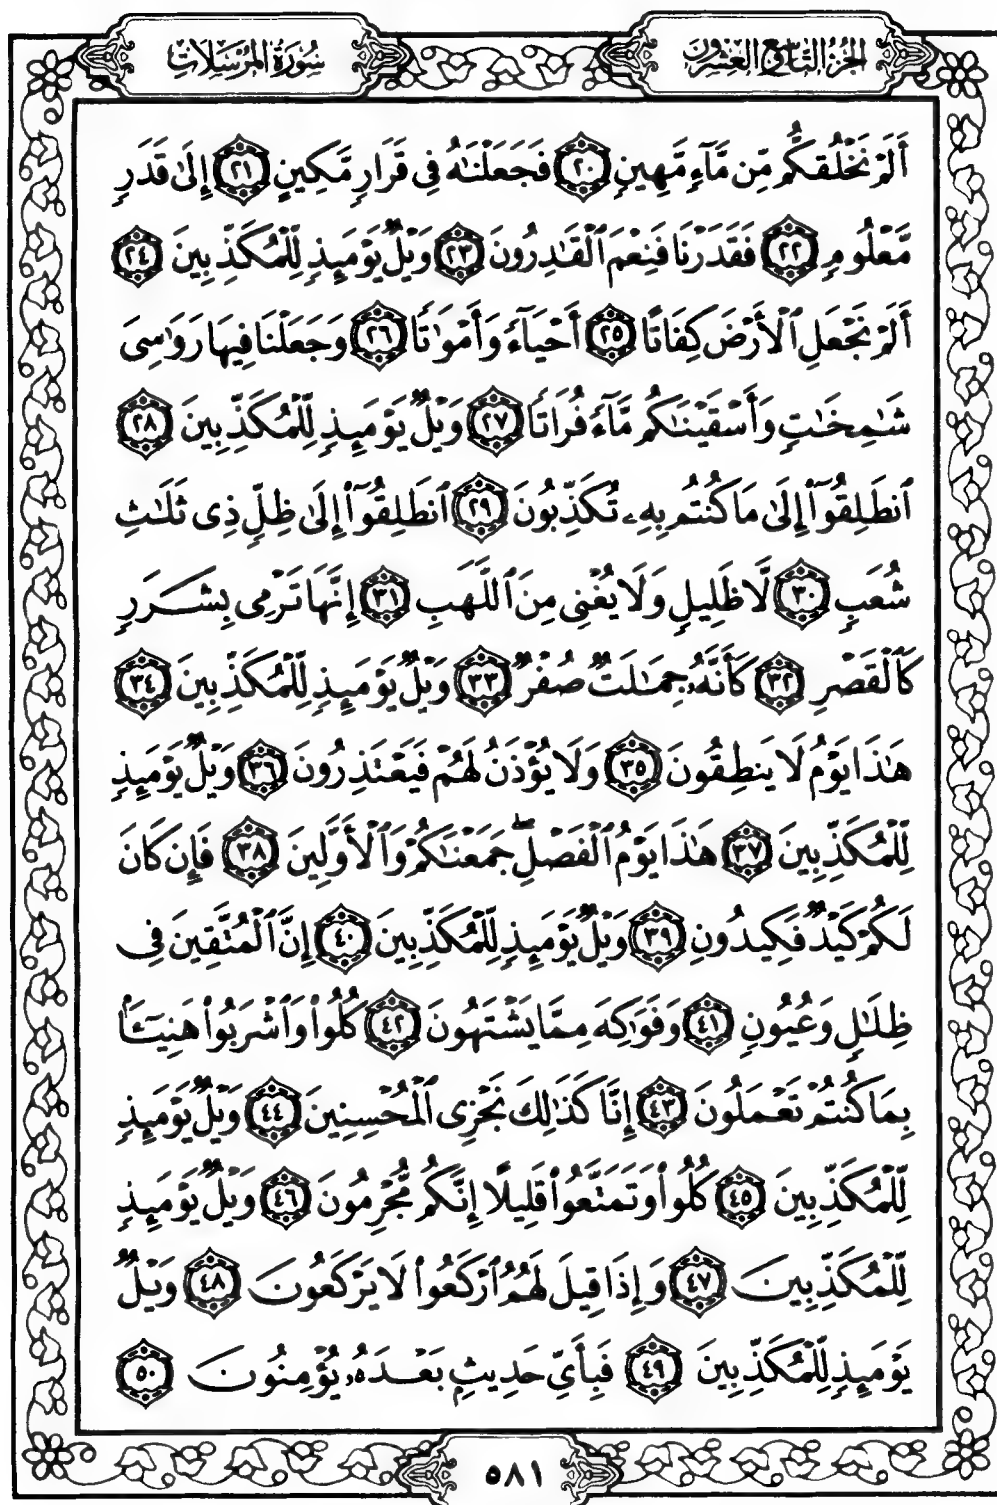 الجُزْءُ التَّاسِعُ وَالعِشْرُونَ
سُورَةُ المُرْسَلَاتِ
أَلَمْ نَخْلُقكُّم مِّن مَّآءٍ مَّهِينٍ ٢٠ فَجَعَلْنَٰهُ فِى قَرَارٍ مَّكِينٍ ٢١ إِلَىٰ قَدَرٍ
مَّعْلُومٍ ٢٢ فَقَدَرْنَا فَنِعْمَ ٱلْقَٰدِرُونَ ٢٣ وَيْلٌ يَوْمَئِذٍ لِّلْمُكَذِّبِينَ ٢٤
أَلَمْ نَجْعَلِ ٱلْأَرْضَ كِفَاتًا ٢٥ أَحْيَآءً وَأَمْوَٰتًا ٢٦ وَجَعَلْنَا فِيهَا رَوَٰسِىَ
شَٰمِخَٰتٍ وَأَسْقَيْنَٰكُم مَّآءً فُرَاتًا ٢٧ وَيْلٌ يَوْمَئِذٍ لِّلْمُكَذِّبِينَ ٢٨
ٱنطَلِقُوٓا۟ إِلَىٰ مَا كُنتُم بِهِۦ تُكَذِّبُونَ ٢٩ ٱنطَلِقُوٓا۟ إِلَىٰ ظِلٍّ ذِى ثَلَٰثِ
شُعَبٍ ٣٠ لَّا ظَلِيلٍ وَلَا يُغْنِى مِنَ ٱللَّهَبِ ٣١ إِنَّهَا تَرْمِى بِشَرَرٍ
كَٱلْقَصْرِ ٣٢ كَأَنَّهُۥ جِمَٰلَتٌ صُفْرٌ ٣٣ وَيْلٌ يَوْمَئِذٍ لِّلْمُكَذِّبِينَ ٣٤
هَٰذَا يَوْمُ لَا يَنطِقُونَ ٣٥ وَلَا يُؤْذَنُ لَهُمْ فَيَعْتَذِرُونَ ٣٦ وَيْلٌ يَوْمَئِذٍ
لِّلْمُكَذِّبِينَ ٣٧ هَٰذَا يَوْمُ ٱلْفَصْلِ ۖ جَمَعْنَٰكُمْ وَٱلْأَوَّلِينَ ٣٨ فَإِن كَانَ
لَكُمْ كَيْدٌ فَكِيدُونِ ٣٩ وَيْلٌ يَوْمَئِذٍ لِّلْمُكَذِّبِينَ ٤٠ إِنَّ ٱلْمُتَّقِينَ فِى
ظِلَٰلٍ وَعُيُونٍ ٤١ وَفَوَٰكِهَ مِمَّا يَشْتَهُونَ ٤٢ كُلُوا۟ وَٱشْرَبُوا۟ هَنِيٓـًٔۢا
بِمَا كُنتُمْ تَعْمَلُونَ ٤٣ إِنَّا كَذَٰلِكَ نَجْزِى ٱلْمُحْسِنِينَ ٤٤ وَيْلٌ يَوْمَئِذٍ
لِّلْمُكَذِّبِينَ ٤٥ كُلُوا۟ وَتَمَتَّعُوا۟ قَلِيلًا إِنَّكُم مُّجْرِمُونَ ٤٦ وَيْلٌ يَوْمَئِذٍ
لِّلْمُكَذِّبِينَ ٤٧ وَإِذَا قِيلَ لَهُمُ ٱرْكَعُوا۟ لَا يَرْكَعُونَ ٤٨ وَيْلٌ
يَوْمَئِذٍ لِّلْمُكَذِّبِينَ ٤٩ فَبِأَىِّ حَدِيثٍۭ بَعْدَهُۥ يُؤْمِنُونَ ٥٠
٥٨١